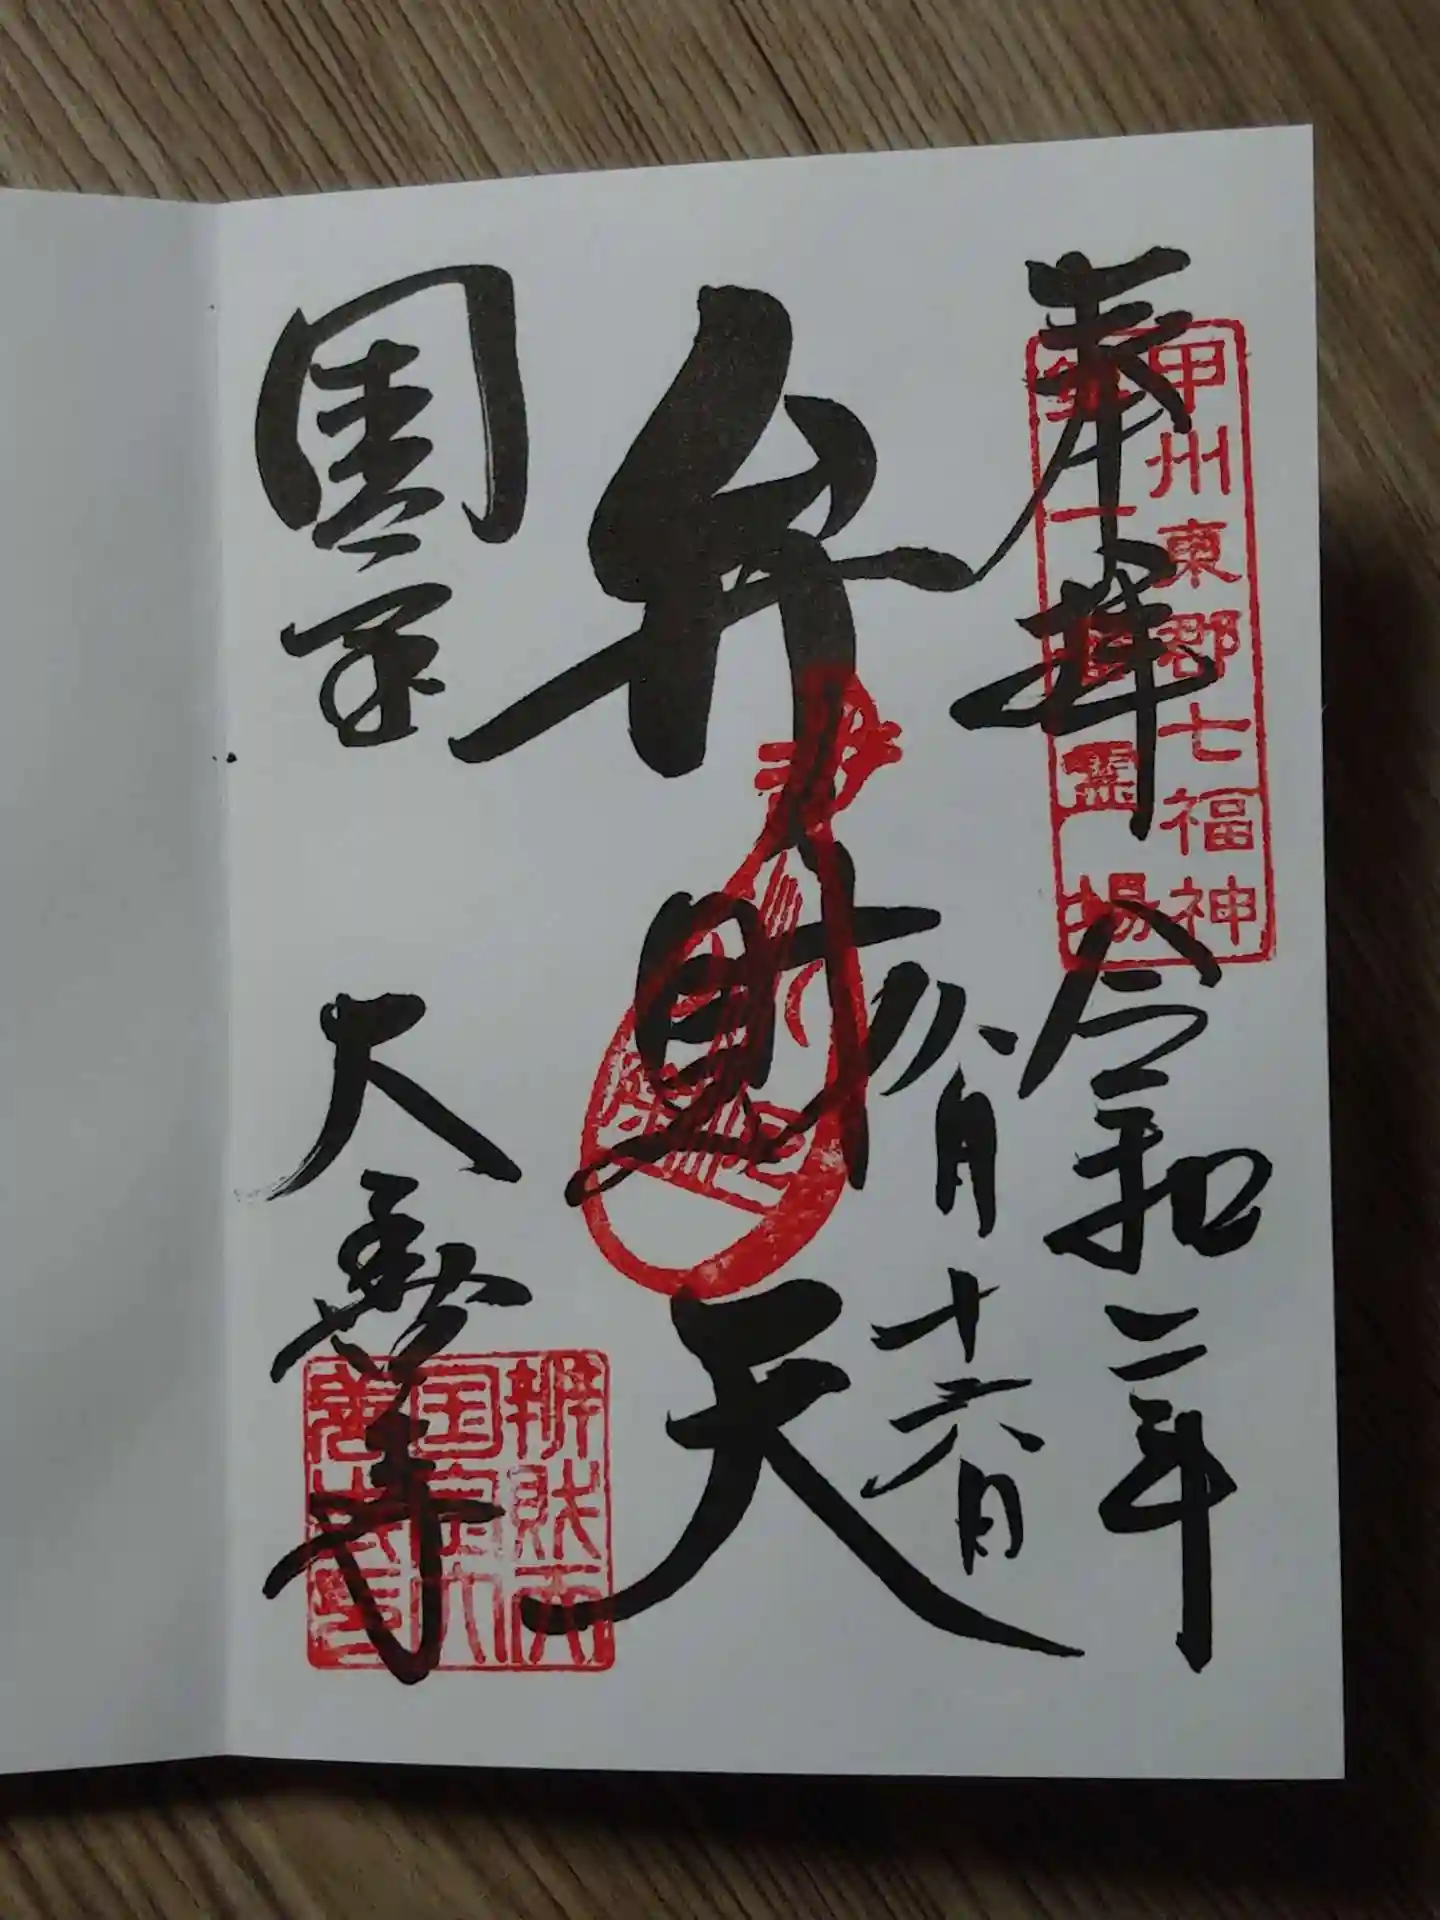 奉拝
甲州東郡七福神
第一番霊場
令和二年
八月十六日
弁財天
國宝
大善寺
辨財天
国宝大
善寺印